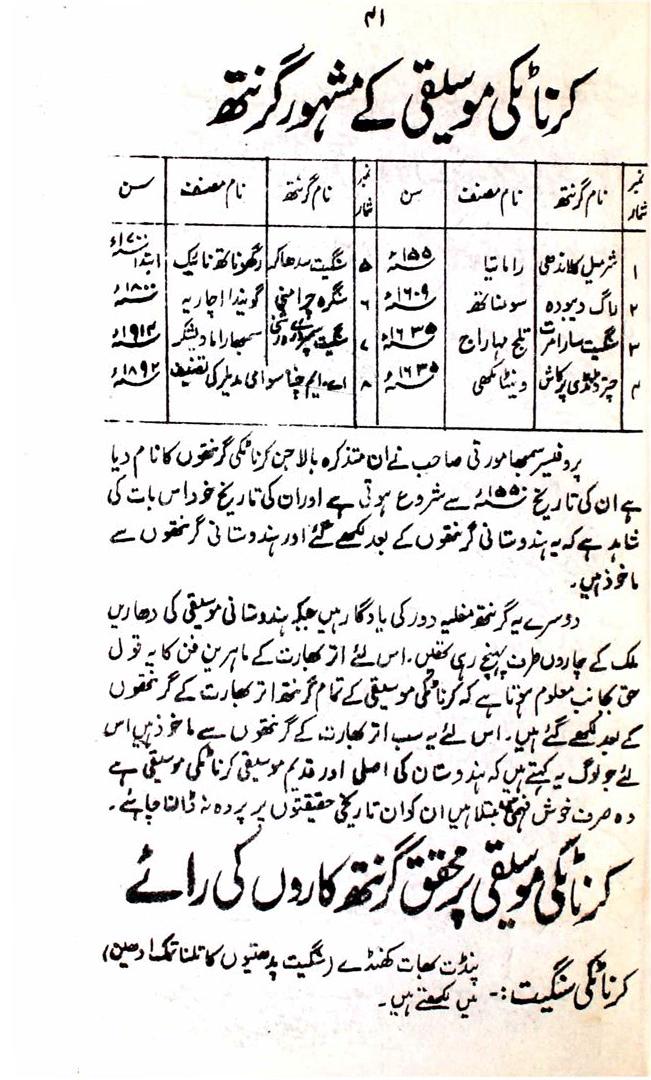 ۴۱
کرناٹکی موسیقی کے مشہور گرنتھ
نمبر شمار | نام گرنتھ | نام مصنف | سن | نمبر شمار | نام گرنتھ | نام مصنف | سن
۱ | کلاندھی | راماتیا | ۱۵۵۰ء | ۵ | سنگیت سدھاکر | رگھوناتھ نائیک | ۱۷۰۰ء ابتدا
۲ | راگ دیبودہ | سومناتھ | ۱۶۰۹ء | ۶ | سنگرہ چرامنی | گوبندا اچاریہ | ۱۸۰۰ء
۳ | سنگیت سارامرت | تلج مہاراج | ۱۶۳۵ء | ۷ | سنگیت | سمجھاراما دیشکر | ۱۹۱۲ء
۴ | چتر ڈنڈی پرکاش | وینٹامکھی | ۱۶۳۵ء | ۸ | اے۔ایم چنا سوامی مدیلر کی تصنیف | ۱۸۹۲ء
پروفیسر سمجھا مورتی صاحب نے ان متذکرہ بالا جن کرناٹکی گرنتھوں کا نام دیا
ہے ان کی تاریخ ۱۵۵۰ء سے شروع ہوتی ہے اور ان کی تاریخ خود اس بات کی
شاہد ہے کہ یہ ہندوستانی گرنتھوں کے بعد لکھے گئے اور ہندوستانی گرنتھوں سے
ماخوذ ہیں۔
دوسرے یہ گرنتھ مغلیہ دور کی یادگار ہیں جبکہ ہندوستانی موسیقی کی دھاریں
ملک کے چاروں طرف پہنچ رہی تھیں۔ اس لئے اتر بھارت کے ماہرین فن کا یہ قول
حق بجانب معلوم ہوتا ہے کہ کرناٹکی موسیقی کے تمام گرنتھ اتر بھارت کے گرنتھوں
کے بعد لکھے گئے ہیں۔ اس لئے یہ سب اتر بھارت کے گرنتھوں سے ماخوذ ہیں اس
لئے جو لوگ یہ کہتے ہیں کہ ہندوستان کی اصلی اور قدیم موسیقی کرناٹکی موسیقی ہے
وہ صرف خوش فہمی میں مبتلا ہیں ان کو ان تاریخی حقیقتوں پر پردہ نہ ڈالنا چاہئے۔
کرناٹکی موسیقی پر محقق گرنتھ کاروں کی رائے
کرناٹکی سنگیت :- پنڈت بھات کھنڈے (سنگیت پدھتیوں کا تلنا تمک ادھین)
میں لکھتے ہیں۔